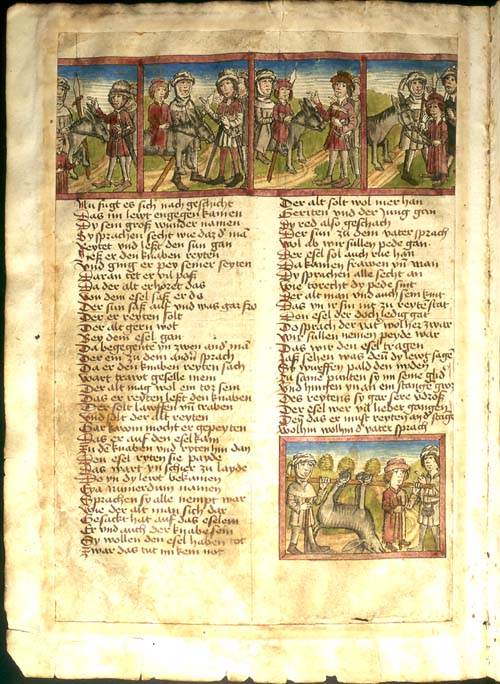 Nu fugt es sich nach geschicht
Das im lewt engegen kamen
Dy sein groß wunder namen
Sy sprachen secht wie daz d' mā
Reytet und lesst den sun gan
Ließ er den knaben reyten
Und ging er pey seiner seyten
Daran tet er vil paß
Da der alt erhoret das
Von dem esel saß er do
Der sun saß auff und was gar fro
Der er reyten solt
Der alt gern wolt
Bey dem esel gan
Da begegente yn zwen and' mā
Der ein zu dem andn sprach
Da er den knaben reyten sach
Wart trawt geselle mein
Der alt mag wol ein tor sein
Das er reyten lest den knaben
Der solt lawffen vn traben
Und solt der alt reyten
Darkawm mocht er gepeyten
Das er auf den esel kam
den knaben vnd reyten hin dan
Den esel ryten sie payde
Das wart yn schier zu layde
Do yn dy lewt bekamen
Eya numerdum namen
Sprachen sy alle nempt war
wie der alt man sich dar
Gesackt hat auf das eselein
Er vnd auch der knabe sein
Sy wollen den esel haben tot
Zwar das tut in kein not
Der alt solt wol mer han
Geriten vnd der Jung gan
Dy red also geschach
Der sun zu dem vater sprach
Wol ab wir sullen pede gan
Der esel sol auch rue han
Da kamen frawen vn man
Dy sprachen alle secht an
Wie torecht dy pede sint
Der alt man vnd auch sein kint
Das yr keiner zu reyten stat
Von esel der doch ledig gat
Do sprach der vat' wol her zwar
wir sullen nemen peyde war
Das wir den esel tragen
Laß sehen was den dy lewt sage
Sy wurffen pald den nyder
Zu same punten sy im seine glid'
Und hingen yn an ein stangen groz
Des reytens sy gar sere v'droß
Der esel wer vil lieber gangen
Den das er must reyten an d' stāge
wol hin wol hin d' vater sprach